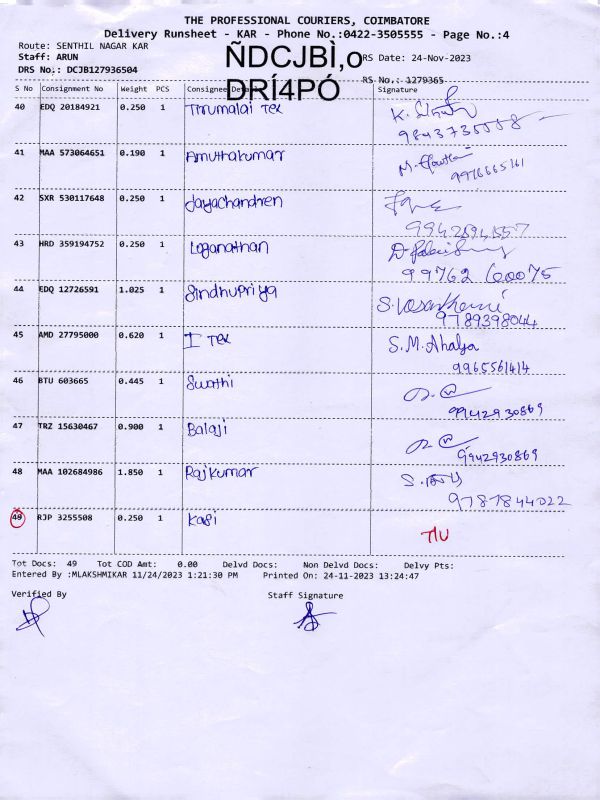 THE PROFESSIONAL COURIERS, COIMBATORE
Delivery Runsheet - KAR - Phone No.:0422-3505555 - Page No.:4
Route: SENTHIL NAGAR KAR
Staff: ARUN
ÑDCJBÌ,o
RS Date: 24-Nov-2023
DRS No.: DCJB127936504
DRÍ4PÓ
RS No.: 1279365
S No Consignment No Weight PCS Consignee Details Signature
40 EDQ 20184921 0.250 1 Thirumalai Tex K.
9843735558
41 MAA 573064651 0.190 1 Amuthakumar M.
9976665161
42 SXR 530117648 0.250 1 Jayachandren
43 HRD 359194752 0.250 1 Loganathan
99762 60075
44 EDQ 12726591 1.025 1 Sindhupriya S. Vasanthamani
9789398044
45 AMD 27795000 0.620 1 I Tex S.M. Ahalya
9965561414
46 BTU 603665 0.445 1 Swathi
9942930869
47 TRZ 15630467 0.900 1 Balaji
9942930869
48 MAA 102684986 1.850 1 Rajkumar S.
9787844022
49 RJP 3255508 0.250 1 Kasi
Tot Docs: 49 Tot COD Amt: 0.00 Delvd Docs: Non Delvd Docs: Delvy Pts:
Entered By :MLAKSHMIKAR 11/24/2023 1:21:30 PM Printed On: 24-11-2023 13:24:47
Verified By Staff Signature